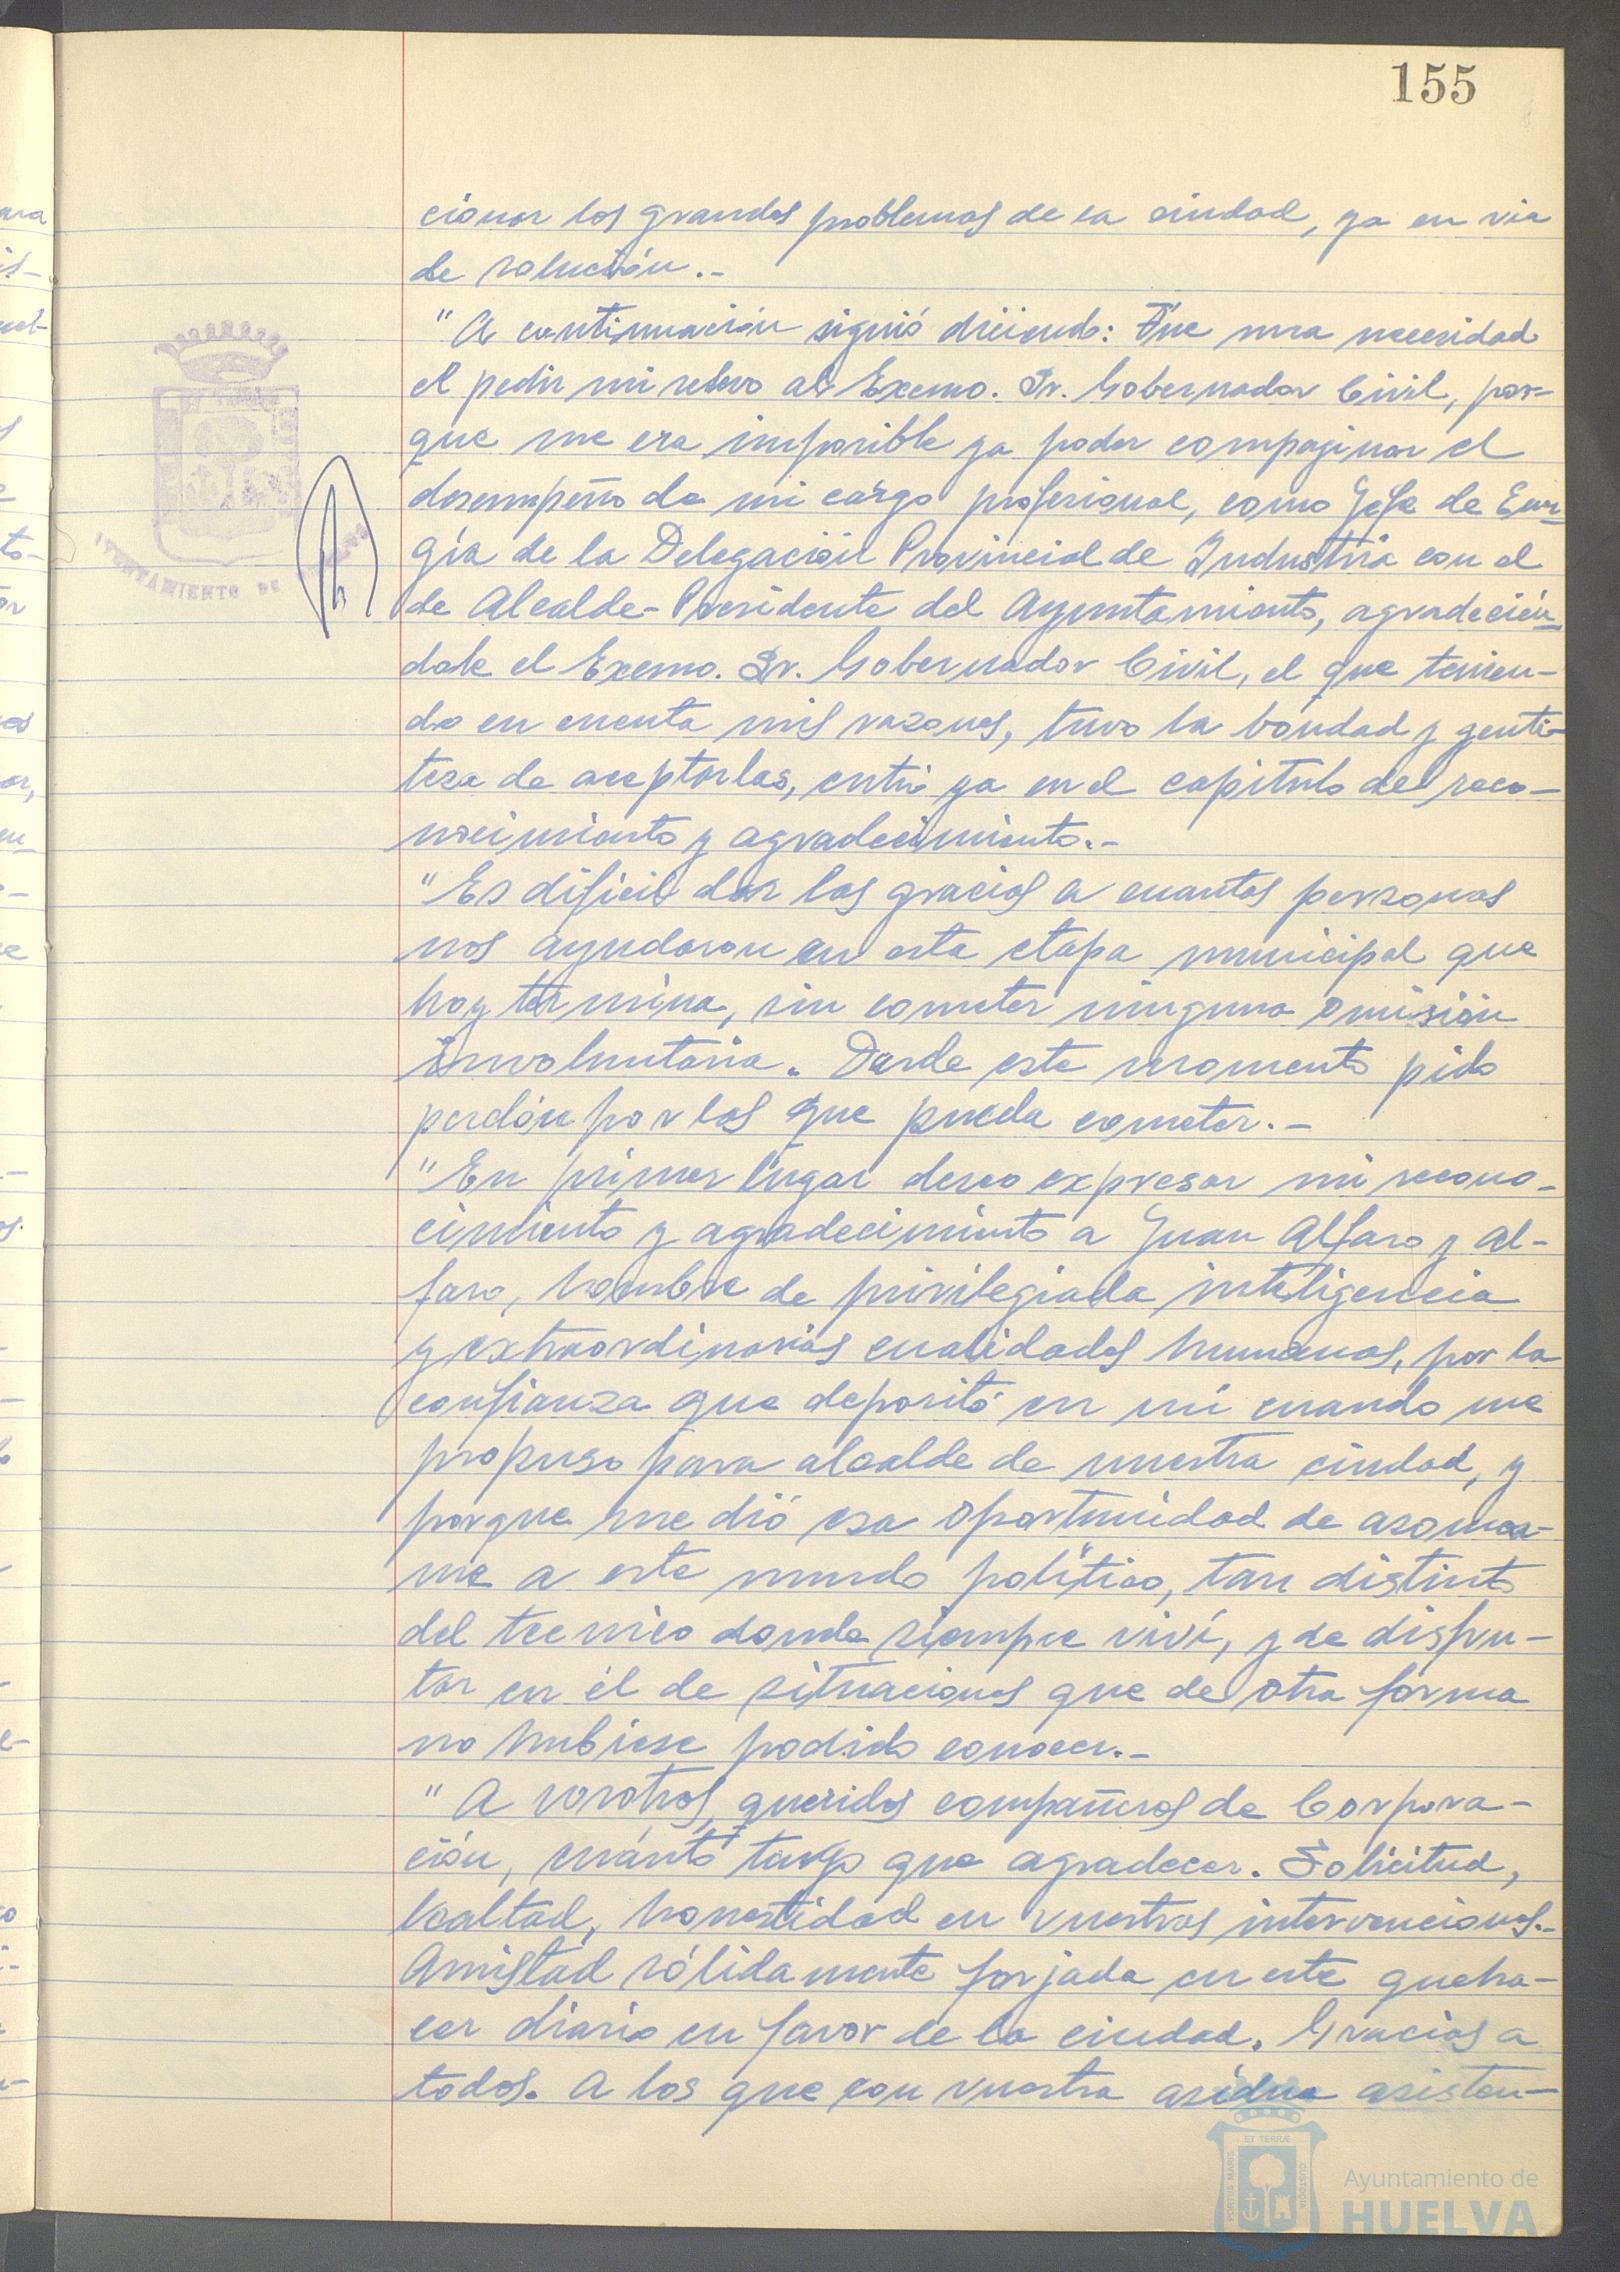 155
cionar los grandes problemas de la ciudad, ya en via
de solución.-
"A continuación siguió diciendo: Fue una necesidad
el pedir mi relevo al Excmo. Sr. Gobernador Civil, por-
que me era imposible ya poder compaginar el
desempeño de mi cargo profesional, como Jefe de Ener-
gía de la Delegación Provincial de Industria con el
de Alcalde-Presidente del Ayuntamiento, agradecién-
dole el Excmo. Sr. Gobernador Civil, el que tenien-
do en cuenta mis razones, tuvo la bondad y genti-
leza de aceptarlas, entro ya en el capitulo del reco-
nocimiento y agradecimiento.-
"Es dificil dar las gracias a cuantas personas
nos ayudaron en esta etapa municipal que
hoy termina, sin cometer ninguna omisión
involuntaria. Desde este momento pido
perdón por las que pueda cometer.-
"En primer lugar deseo expresar mi recono-
cimiento y agradecimiento a Juan Alfaro y Al-
faro, hombre de privilegiada inteligencia
y extraordinarias cualidades humanas, por la
confianza que depositó en mi cuando me
propuso para alcalde de nuestra ciudad, y
porque me dió esa oportunidad de asomar-
me a este mundo político, tan distinto
del tecnico donde siempre viví, y de disfru-
tar en él de situaciones que de otra forma
no hubiese podido conocer.-
"A vosotros, queridos compañeros de Corpora-
ción, cuánto tengo que agradecer. Solicitud,
lealtad, honestidad en vuestras intervenciones.-
Amistad sólidamente forjada en este queha-
cer diario en favor de la ciudad. Gracias a
todos. A los que con vuestra asidua asisten-
AYUNTAMIENTO DE HUELVA
PORTUS MARIS ET TERRÆ CUSTODIA
Ayuntamiento de
HUELVA